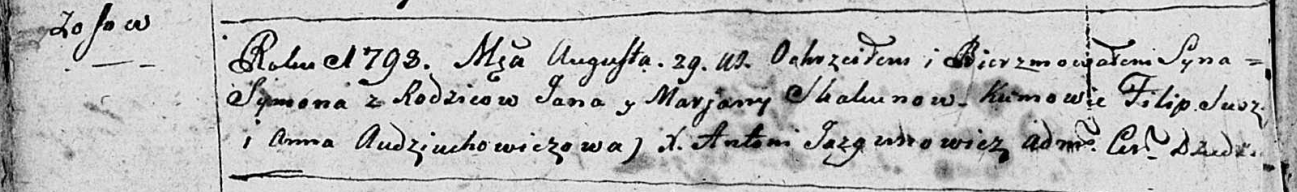 Zosow
Roku 1793. Msca Augusta. 29. d. Ochrzciłem i Bierzmowałem Syna =
Symona z Rodzicow Jana y Marjany Skakunow. Kumowie Filip Susz
i Anna Audziuchowiczowa) X. Antoni Jazgunowicz adm. Cer. Dzedz.